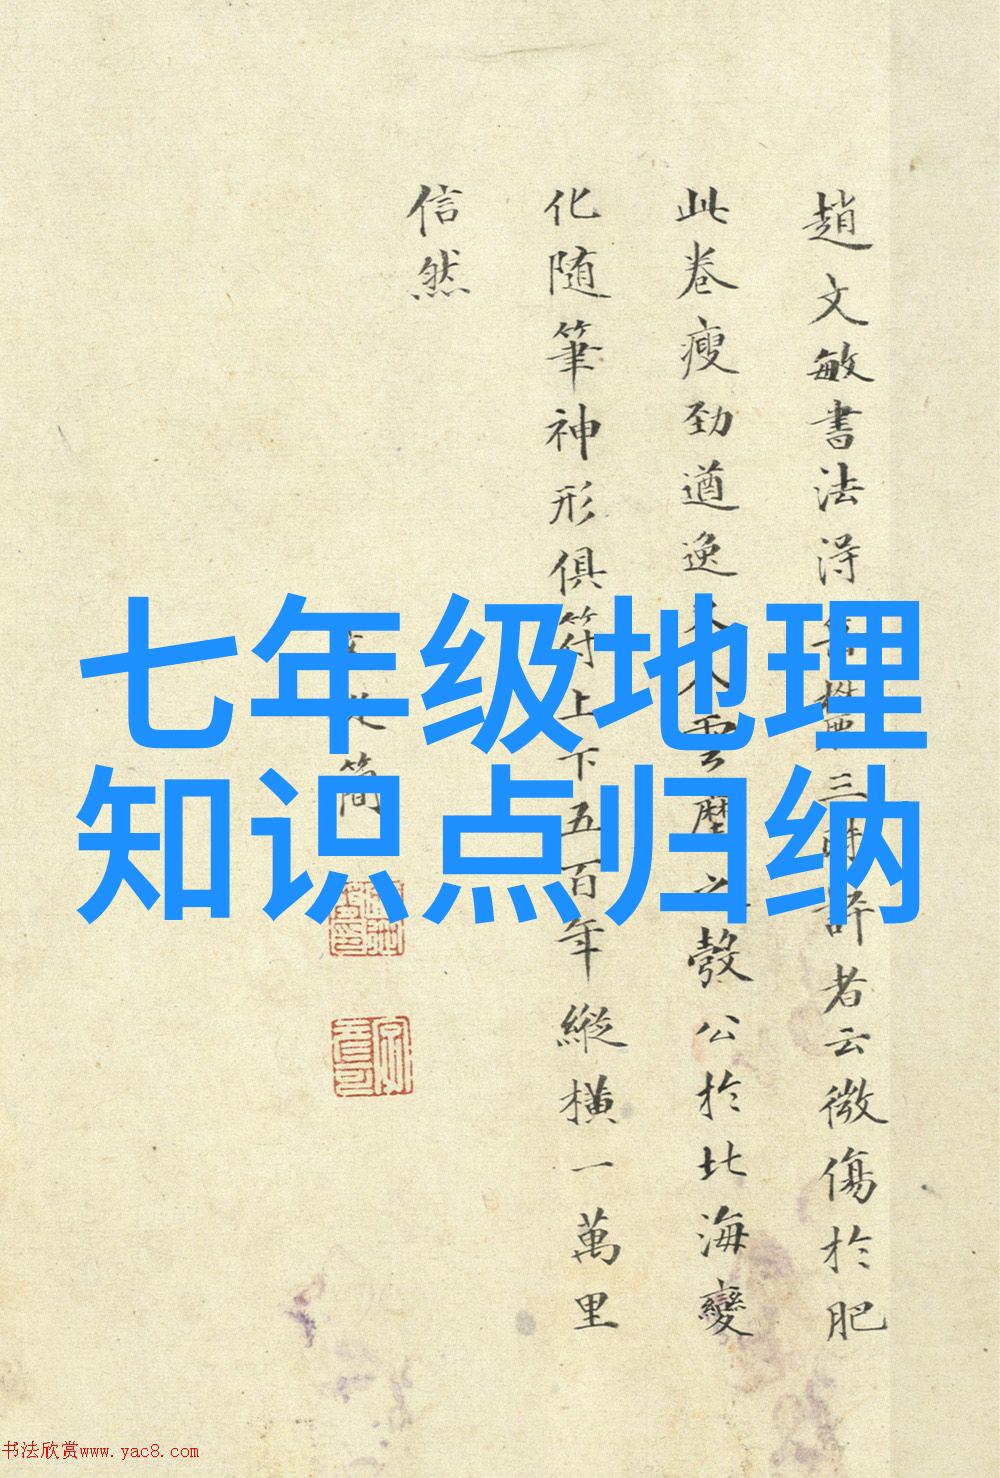 七年级地理
知识点归纳
趙文敏書法淂晋襍三昧評者云微傷於肥
此卷瘦劲遒逸天人雲麾之彀公於北海變
化随筆神形俱符上下五百年縱横一萬里
信然
莫是簡
书法欣赏www.yac8.com